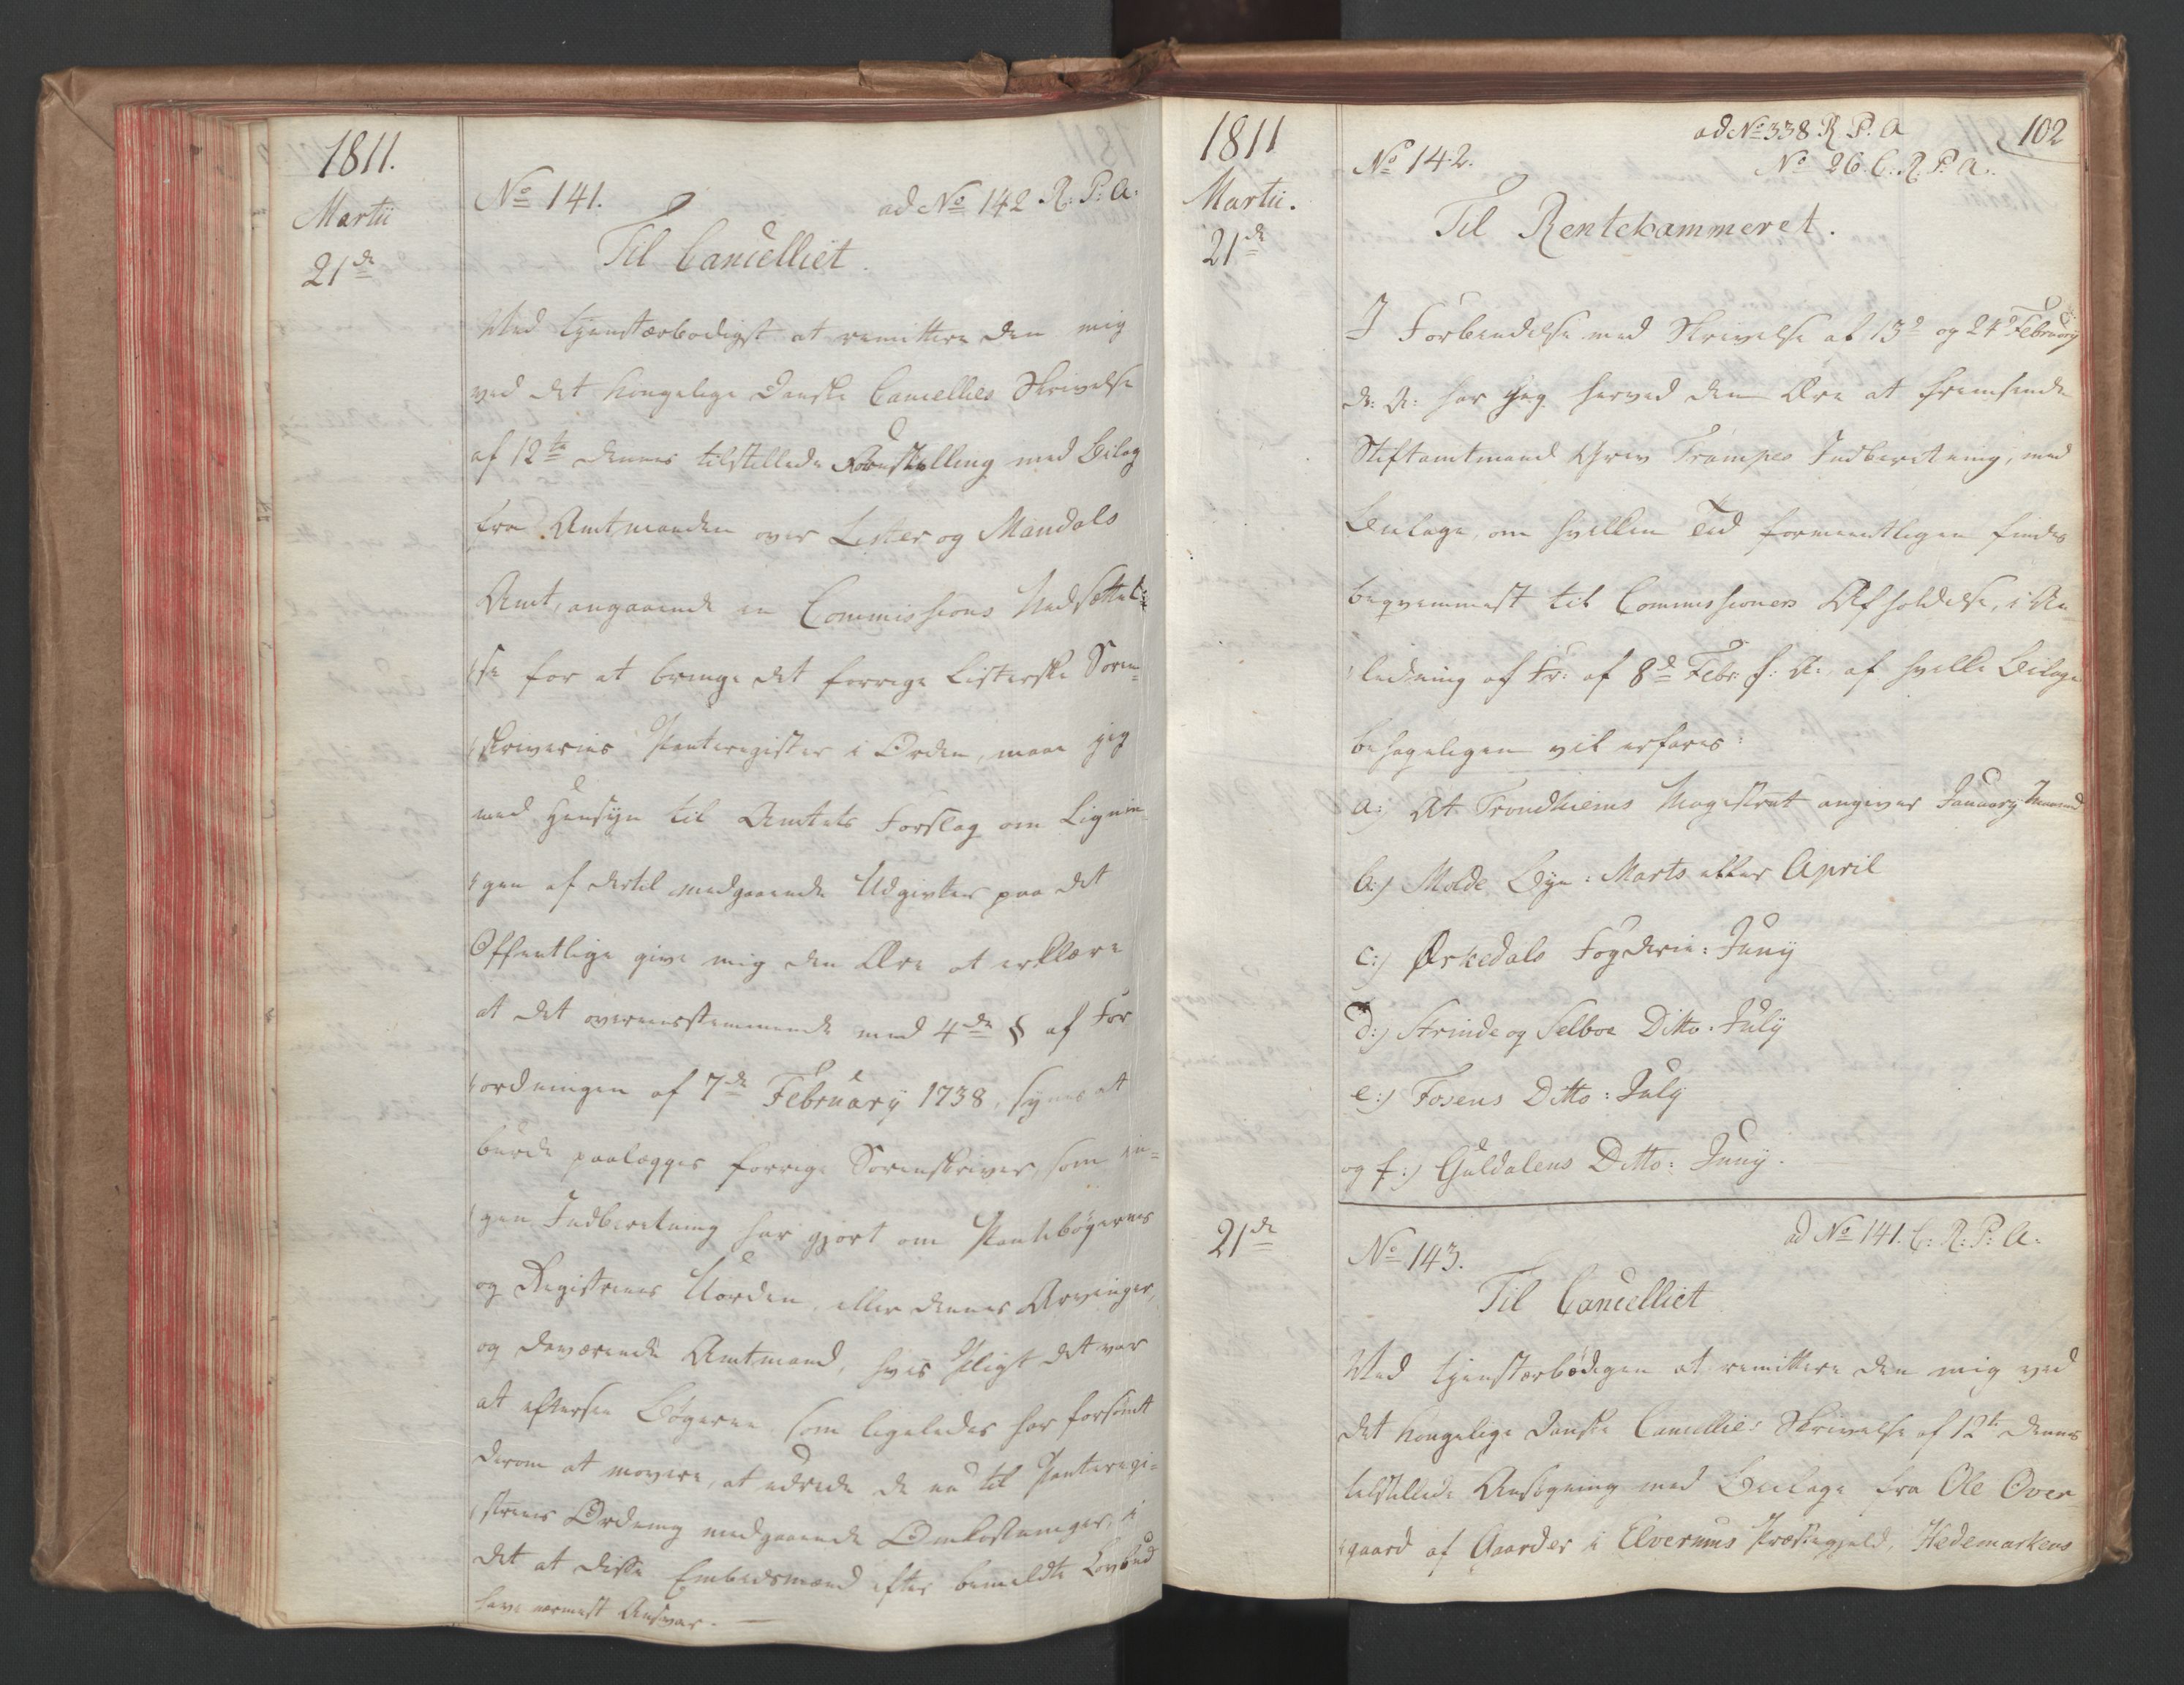 1811.
Martii
21de
No 141.
ad No 142 R: P: A:
Til Cancelliet.
Med tjenstærbødigst at remittere den mig
ved det kongelige Danske Cancellies Skrivelse
af 12te dennes tilstillede Forestilling med Bilag
fra Amtmanden over Lister og Mandals
Amt, angaaende en Commissions Nedsættel-
se for at bringe det forrige Listerske Soren-
skriveries Panteregister i Orden, maae jeg
med Hensyn til Amtets Forslag om Lignin-
gen af dertil medgaaende Udgivter paa det
Offentlige give mig den Ære at erklære
at det overeensstemmende med 4de § af For
ordningen af 7de February 1738, synes at
burde paalægges forrige Sorenskriver, som in-
gen Indberetning har gjort om Pantebøgernes
og Registrenes Uorden, eller dennes Arvinger,
og daværende Amtmand, hvis Pligt det var
at eftersee Bøgerne, som ligeledes har forsømt
derom at movere, at udrede de nu til Panteregi-
strenes Ordning medgaaende Omkostninger, i
det at disse Embedsmænd efter bemeldte Lovbud
have nærmest Ansvar. —
1811
Martii.
21de
102
ad No 338 R. P. A
No 142.
No 26. C. R. P. A.
Til Rentekammeret.
I Forbindelse med Skrivelse af 13d og 24d February
d: A: har jeg herved den Ære at fremsende
Stiftamtmand Grev Trampes Indberetning, med
Beilage, om hvilken Tid formeentligen findes
beqvemmest til Commissioners Afholdelse, i An-
ledning af Fr: af 8d Febr: f: A: af hvilke Bilage
behageligen vil erfares:
a:) At Trondhiems Magistrat angiver January Maaned
b:) Molde Bye: Marts eller April
c:) Ørkedals Fogderie: Juny
d:) Strinde og Selboe Ditto: July
e:) Fosens Ditto: July
og f:) Guldalens Ditto: Juny.
21de
No 143.
ad No 141. C: R: P: A.
Til Cancelliet
Med tjenstærbødigen at remittere den mig ved
det kongelige Danske Cancellies Skrivelse af 12te dennes
tilstillede Ansøgning med Beilage fra Ole Over-
gaard af Gaarder i Elverums Præstegjeld, Hedemarkens